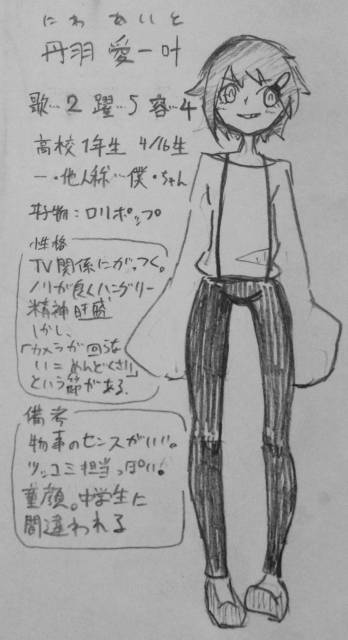 にわ あいと
丹羽 愛一叶
歌…2 躍…5 容…4
高校1年生 4/16生
一・他人称…僕・ちゃん
好物:ロリポップ
性格
TV関係にがっつく。
ノリが良くハングリー
精神旺盛
しかし、
「カメラが回らな
いこ めんどくさい」
という節がある。
備考
物事のセンスがいい。
ツッコミ担当っぽい。
童顔。中学生に
間違われる